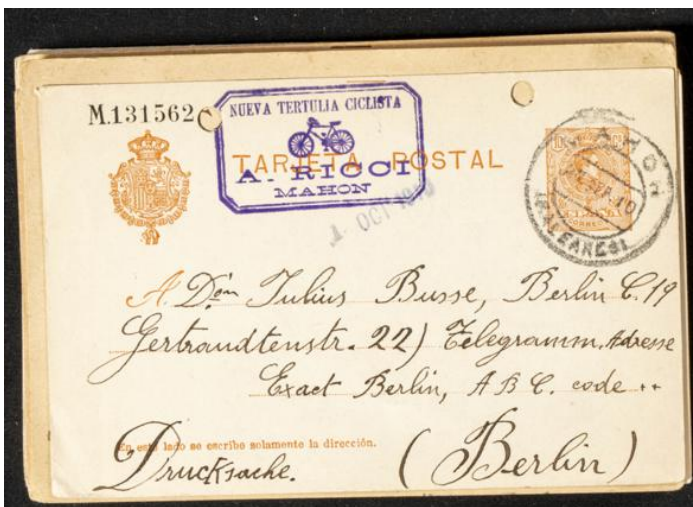 M.131562
NUEVA TERTULIA CICLISTA
TARJETA POSTAL
A. RICCI
MAHON
OCT
MAHON
10
(BALEARES)
A Dón Julius Busse, Berlin C. 19
Gertraudtenstr. 22) Telegramm. Adresse
Exact Berlin, A B C. code
En este lado se escribe solamente la dirección.
Drucksache. (Berlin)